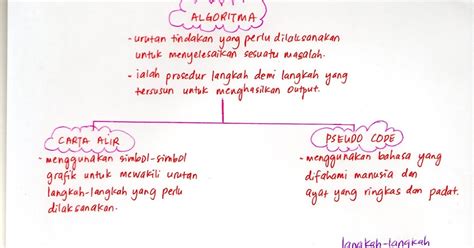 ALGORITMA
- urutan tindakan yang perlu dilaksanakan
untuk menyelesaikan sesuatu masalah.
- ialah prosedur langkah demi langkah yang
tersusun untuk menghasilkan output.
CARTA ALIR
- menggunakan simbol-simbol
grafik untuk mewakili urutan
langkah-langkah yang perlu
dilaksanakan.
PSEUDO CODE
- menggunakan bahasa yang
difahami manusia dan
ayat yang ringkas dan padat.
langkah-langkah